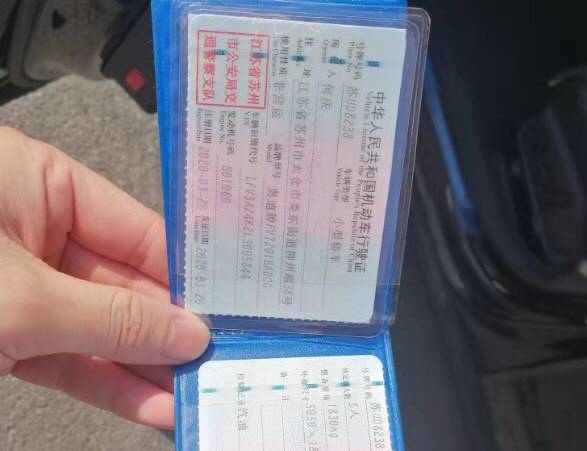 中华人民共和国机动车行驶证
Vehicle License of the People's Republic of China
号牌号码 苏UD8238 车辆类型 小型轿车
Plate No. Vehicle Type
所有人 何庆
Owner
住址 江苏省苏州市太仓市娄东街道柳州路38号
Address
使用性质 非营运 品牌型号
Use Character Model
江苏省苏州
市公安局交
通警察支队
车辆识别代号
VIN
发动机号码
Engine No.
注册日期 2020-03-20 发证日期 2020-03-20
Register Date Issue Date
号牌号码 苏UD8238
核定载人数 5人
整备质量 1830kg
外廓尺寸
备注
检验记录 汽油